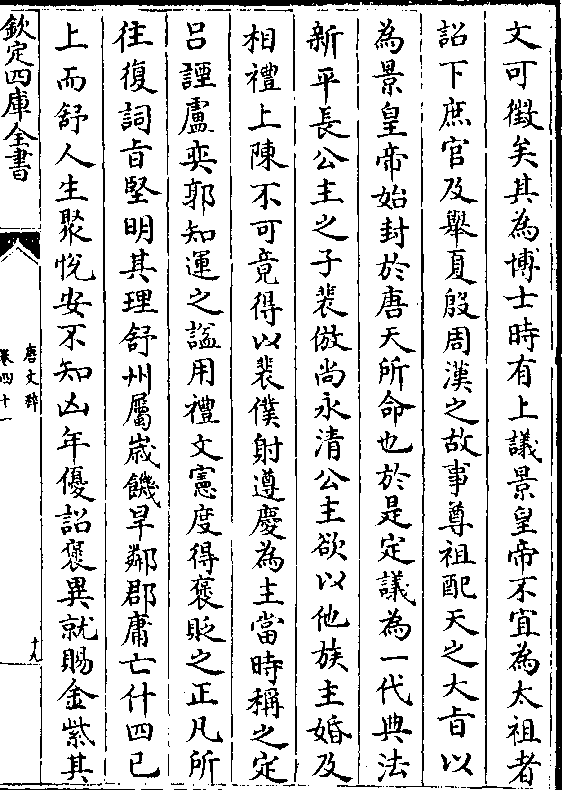 文可徵矣其為博士時有上議景皇帝不宜為太祖者
詔下庶官及舉夏殷周漢之故事尊祖配天之大旨以
為景皇帝始封於唐天所命也於是定議為一代典法
新平長公主之子裴倣尚永清公主欲以他族主婚及
相禮上陳不可竟得以裴僕射遵慶為主當時稱之定
吕諲盧奕郭知運之謚用禮文憲度得襃貶之正凡所
往復詞旨堅明其理舒州屬歲饑旱鄰郡庸亡什四已
上而舒人生聚悅安不知凶年優詔襃異就賜金紫其
欽定四庫全書
唐文粹
卷四十一
十九